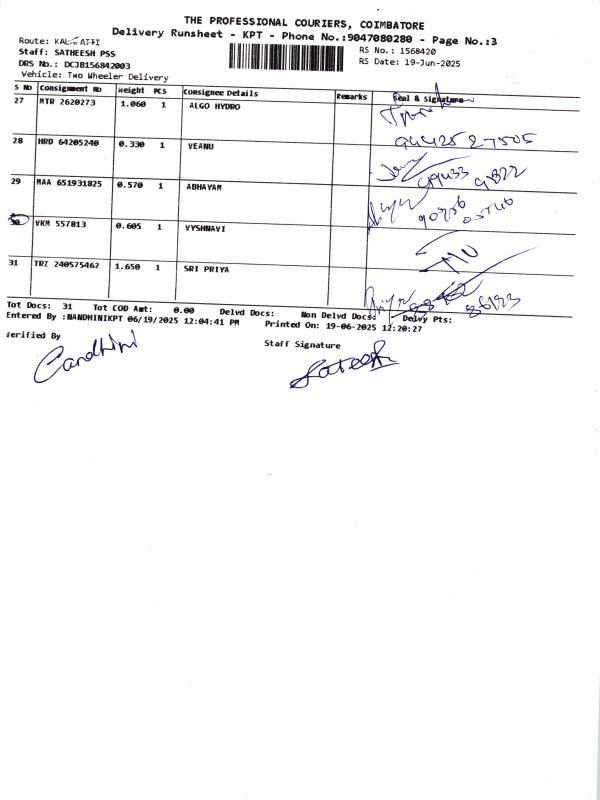 THE PROFESSIONAL COURIERS, COIMBATORE
Delivery Runsheet - KPT - Phone No.:9047080280 - Page No.:3
Route:
Staff: SATHEESH PSS
DRS No.: DCJB156842003
Vehicle: Two Wheeler Delivery
RS No.: 1568420
RS Date: 19-Jun-2025
S No Consignment No Weight PCS Consignee Details Remarks Seal & Signature
27 MTR 2620273 1.060 1 ALGO HYDRO
94425 27505
28 HRD 64205240 0.330 1 VEANU
99433 9822
29 MAA 651931825 0.570 1 ABHAYAM
30 VKM 557813 0.605 1 VYSHNAVI
31 TRZ 240575462 1.650 1 SRI PRIYA
Tot Docs: 31 Tot COD Amt: 0.00 Delvd Docs: Non Delvd Docs: Delvy Pts:
Entered By :NANDHINIKPT 06/19/2025 12:04:41 PM Printed On: 19-06-2025 12:20:27
Verified By
Staff Signature